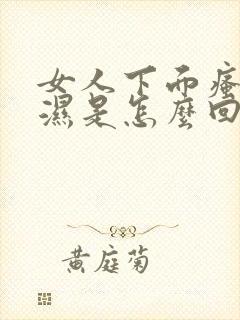 女人下面瘙
濕是怎麼回
黃庭菊